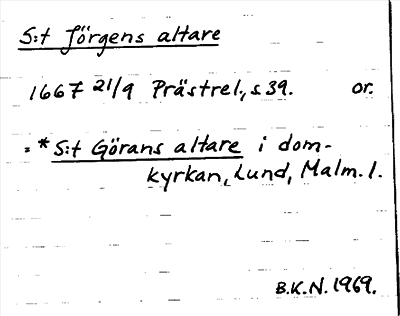 S:t Jörgens altare
1667 21/9 Prästrel., s 39. or.
= *S:t Görans altare i dom-
kyrkan, Lund, Malm. l.
B.K.N. 1969.